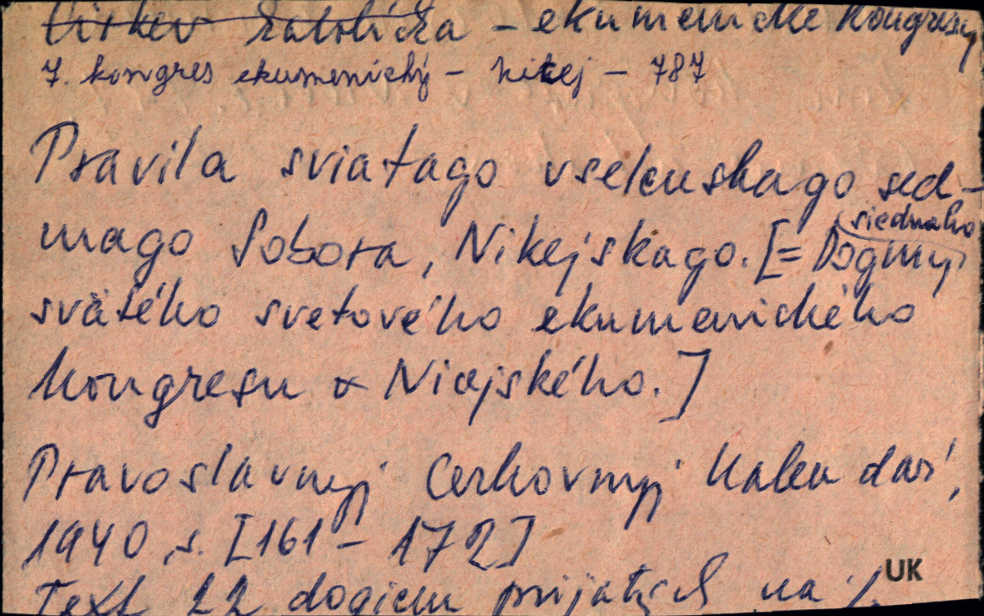 Cirkev katolícka – ekumenické kongresy
7. kongres ekumenický – Nicej – 787
Pravila sviatago vselenskago sed-
mago Sobora, Nikejskago. [= Dogmy siedmeho
svätého svetového ekumenického
kongresu Nicejského.]
Pravoslavnyj Cerkovnyj Kalendar',
1940, s. [161 – 172]
Text 22 dogiem prijatých na
UK